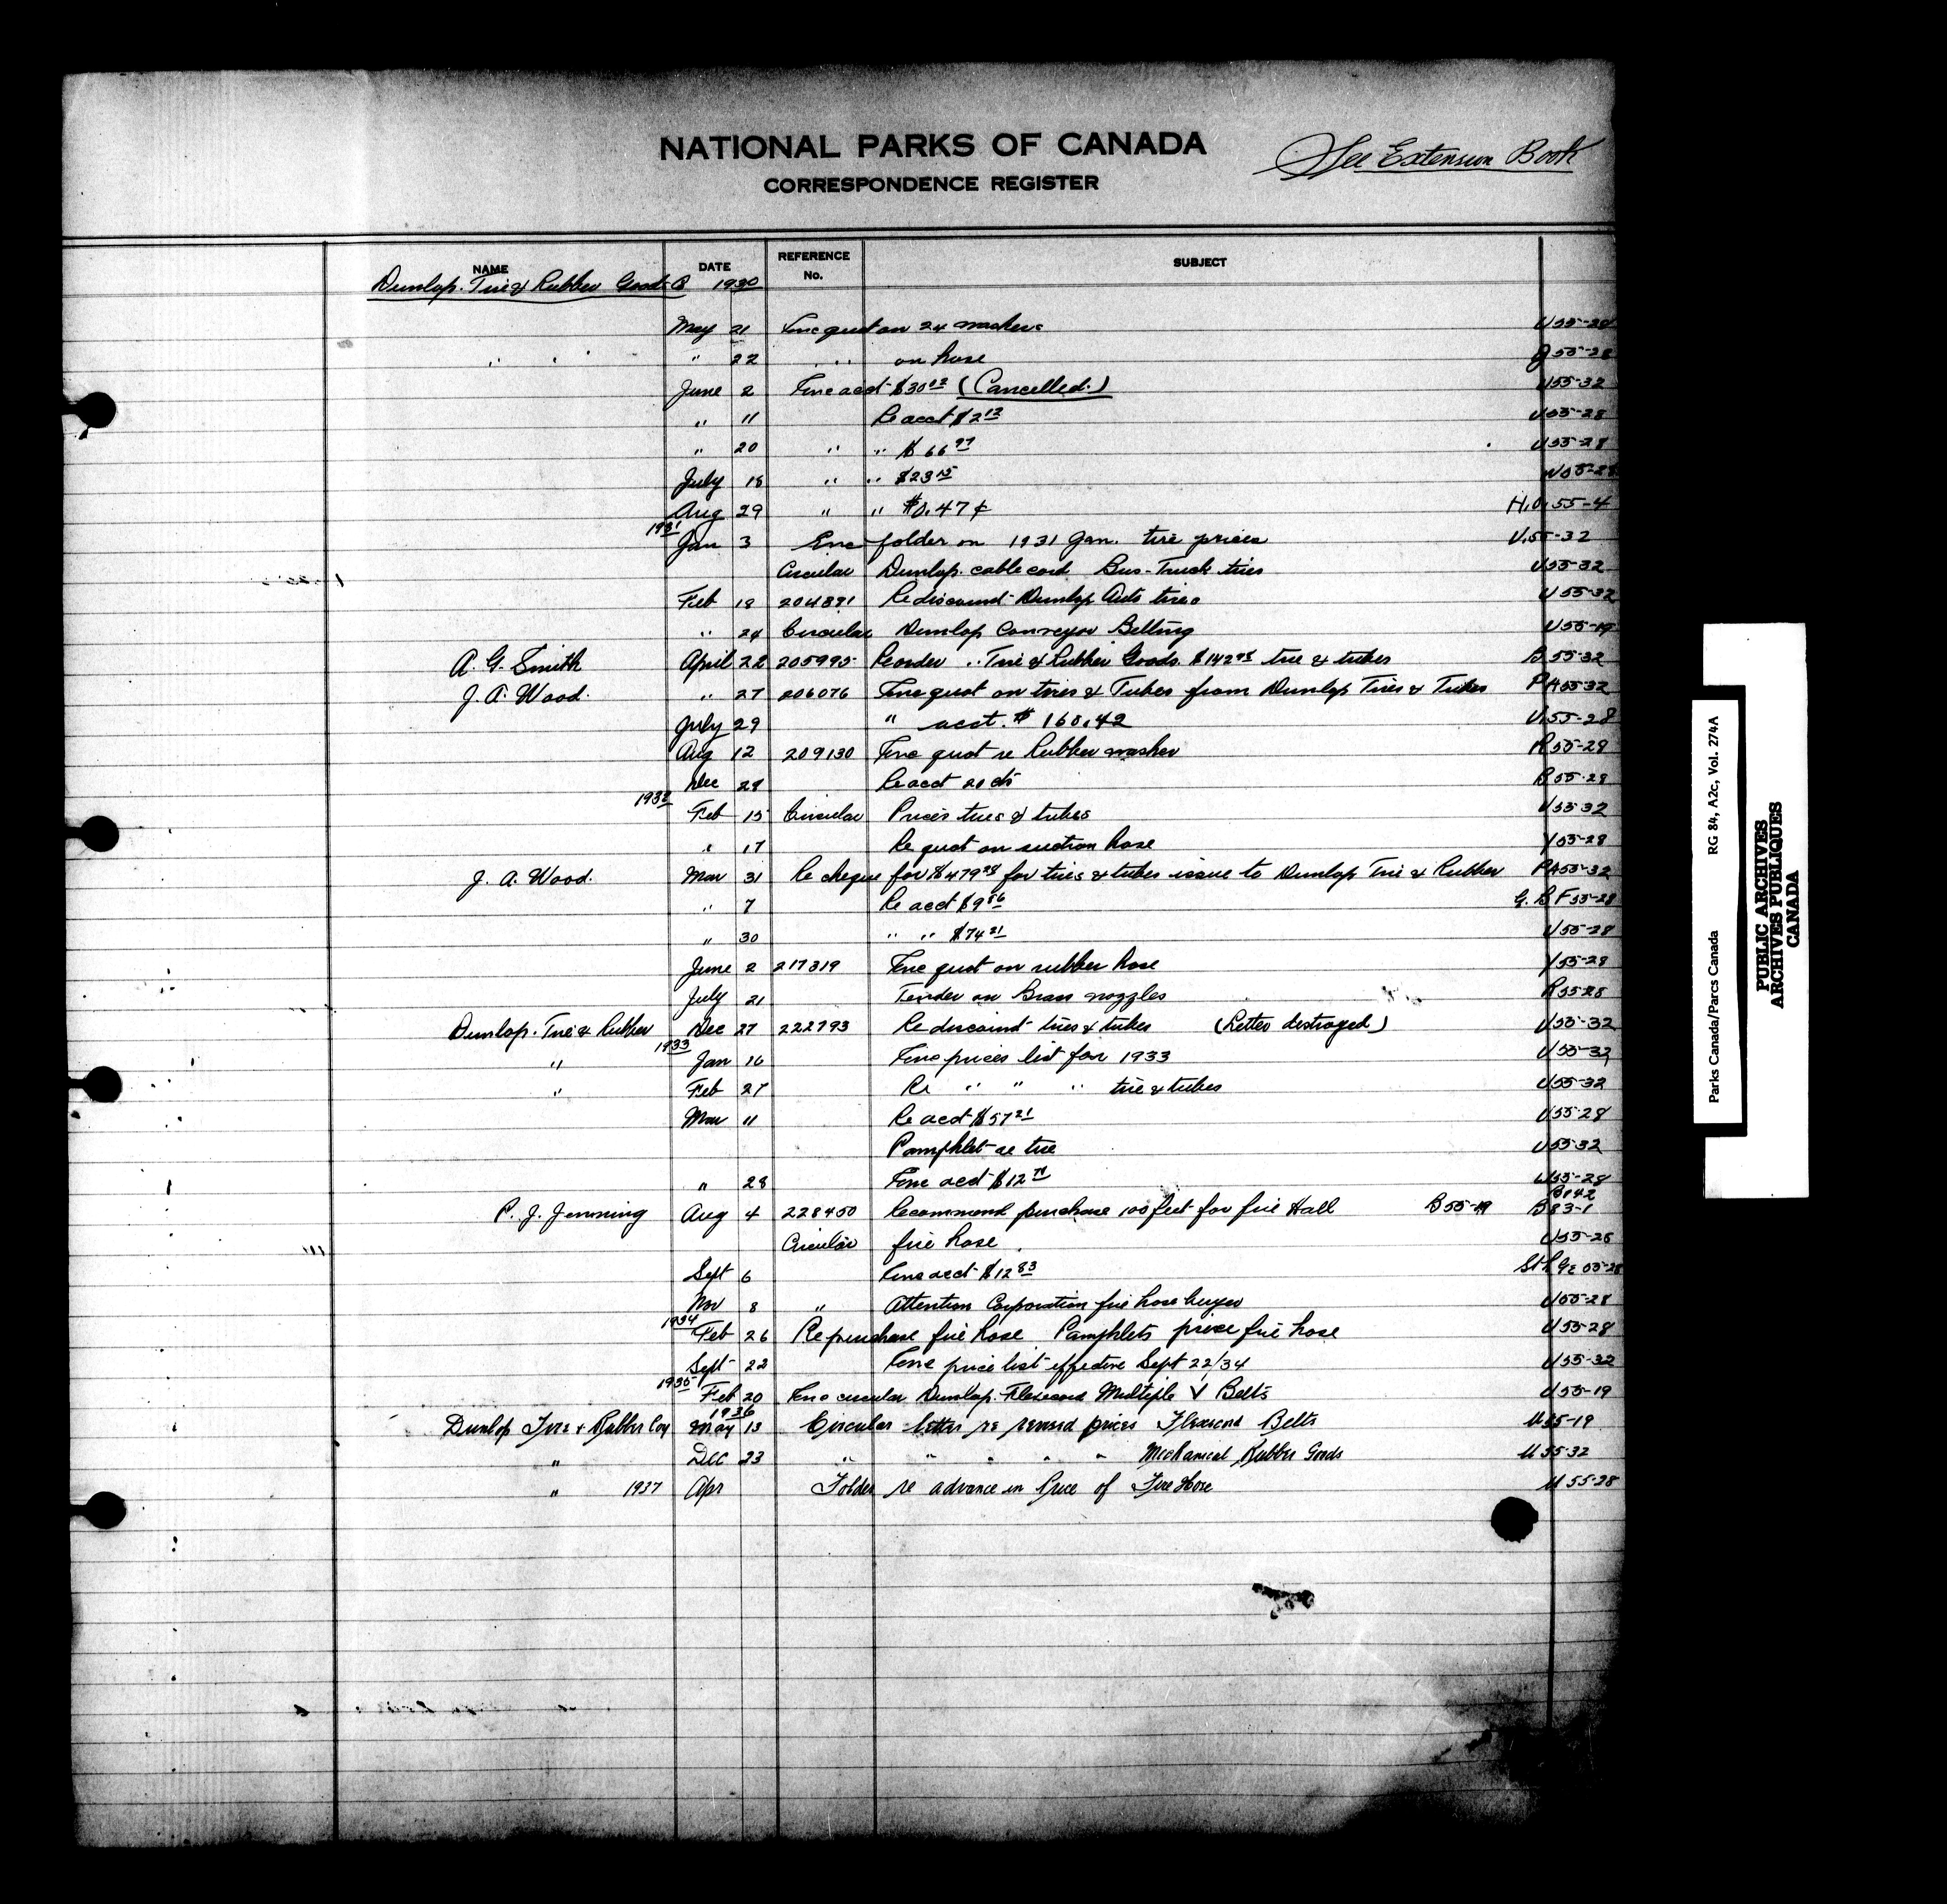 NATIONAL PARKS OF CANADA
See Extension Book
CORRESPONDENCE REGISTER
NAME DATE REFERENCE No. SUBJECT
Dunlop. Tire & Rubber Goods Co 1930
May 21 Enc quot on 24 washers U55-28
" " " " 22 " " on hose J55-28
June 2 Enc acct $30 (Cancelled.) U55-32
" 11 Re acct $2 12 U55-28
" 20 " " $66 97 U55-28
July 18 " " $23 15 55-28
Aug 29 " " $0.47¢ H.O. 55-4
1931
Jan 3 Enc folder on 1931 Jan. tire prices U.55-32
Circular Dunlop. cable cord Bus-Truck tires U55-32
Feb 18 204891 Re discount Dunlop Auto tires U55-32
" 24 Circular Dunlop Conveyor Belting U55-19
A. G. Smith April 22 205995 Re order " Tire & Rubber Goods $142 98 tire & tubes B55-32
J. A. Wood. " 27 206076 Enc quot on tires & Tubes from Dunlop Tires & Tubes PA55-32
July 29 " acct. $ 160.42 U.55-28
Aug 12 209130 Enc quot re Rubber washer R55-28
Dec 29 Re acct 20 cts B55-28
1932
Feb 15 Circular Prices tires & tubes U55-32
" 17 Re quot on suction hose Y55-28
J. A. Wood. Mar 31 Re cheque for $479 28 for tires & tubes issue to Dunlop Tire & Rubber PA55-32
" 7 Re acct $9 86 G. B F55-28
" 30 " " $74 21 U55-28
June 2 217319 Enc quot on rubber hose Y55-28
July 21 Tender on Brass nozzles R55-28
Dunlop. Tire & Rubber Dec 27 222793 Re discount tires & tubes (Letter destroyed) U55-32
1933
" Jan 16 Enc prices list for 1933 U55-32
" Feb 27 Re " " " tire & tubes U55-32
Mar 11 Re acct $57 21 U55-28
Pamphlet re tire U55-32
" 28 Enc acct $12 U55-28
P. J. Jenning Aug 4 228450 Recommend purchase 100 feet for fire Hall B55-19 B142 B83-1
Circular fire hose U55-28
Sept 6 Enc acct $12 83 55-28
Nov 8 " Attention Corporation fire hose buyer U55-28
1934
Feb 26 Re purchase fire hose Pamphlets price fire hose U55-28
Sept 22 Enc price list effective Sept 22/34 U55-32
1935
Feb 20 Enc circular Dunlop. Flexcord Multiple V Belts U55-19
1936
Dunlop Tire + Rubber Coy May 13 Circular letter re revised prices Flexcord Belts U55-19
" Dec 23 " " " " " Mechanical Rubber Goods U55-32
" 1937 Apr Folder re advance in Price of Fire Hose U55-28
Parks Canada/Parcs Canada RG 84, A2c, Vol. 274A
PUBLIC ARCHIVES
ARCHIVES PUBLIQUES
CANADA